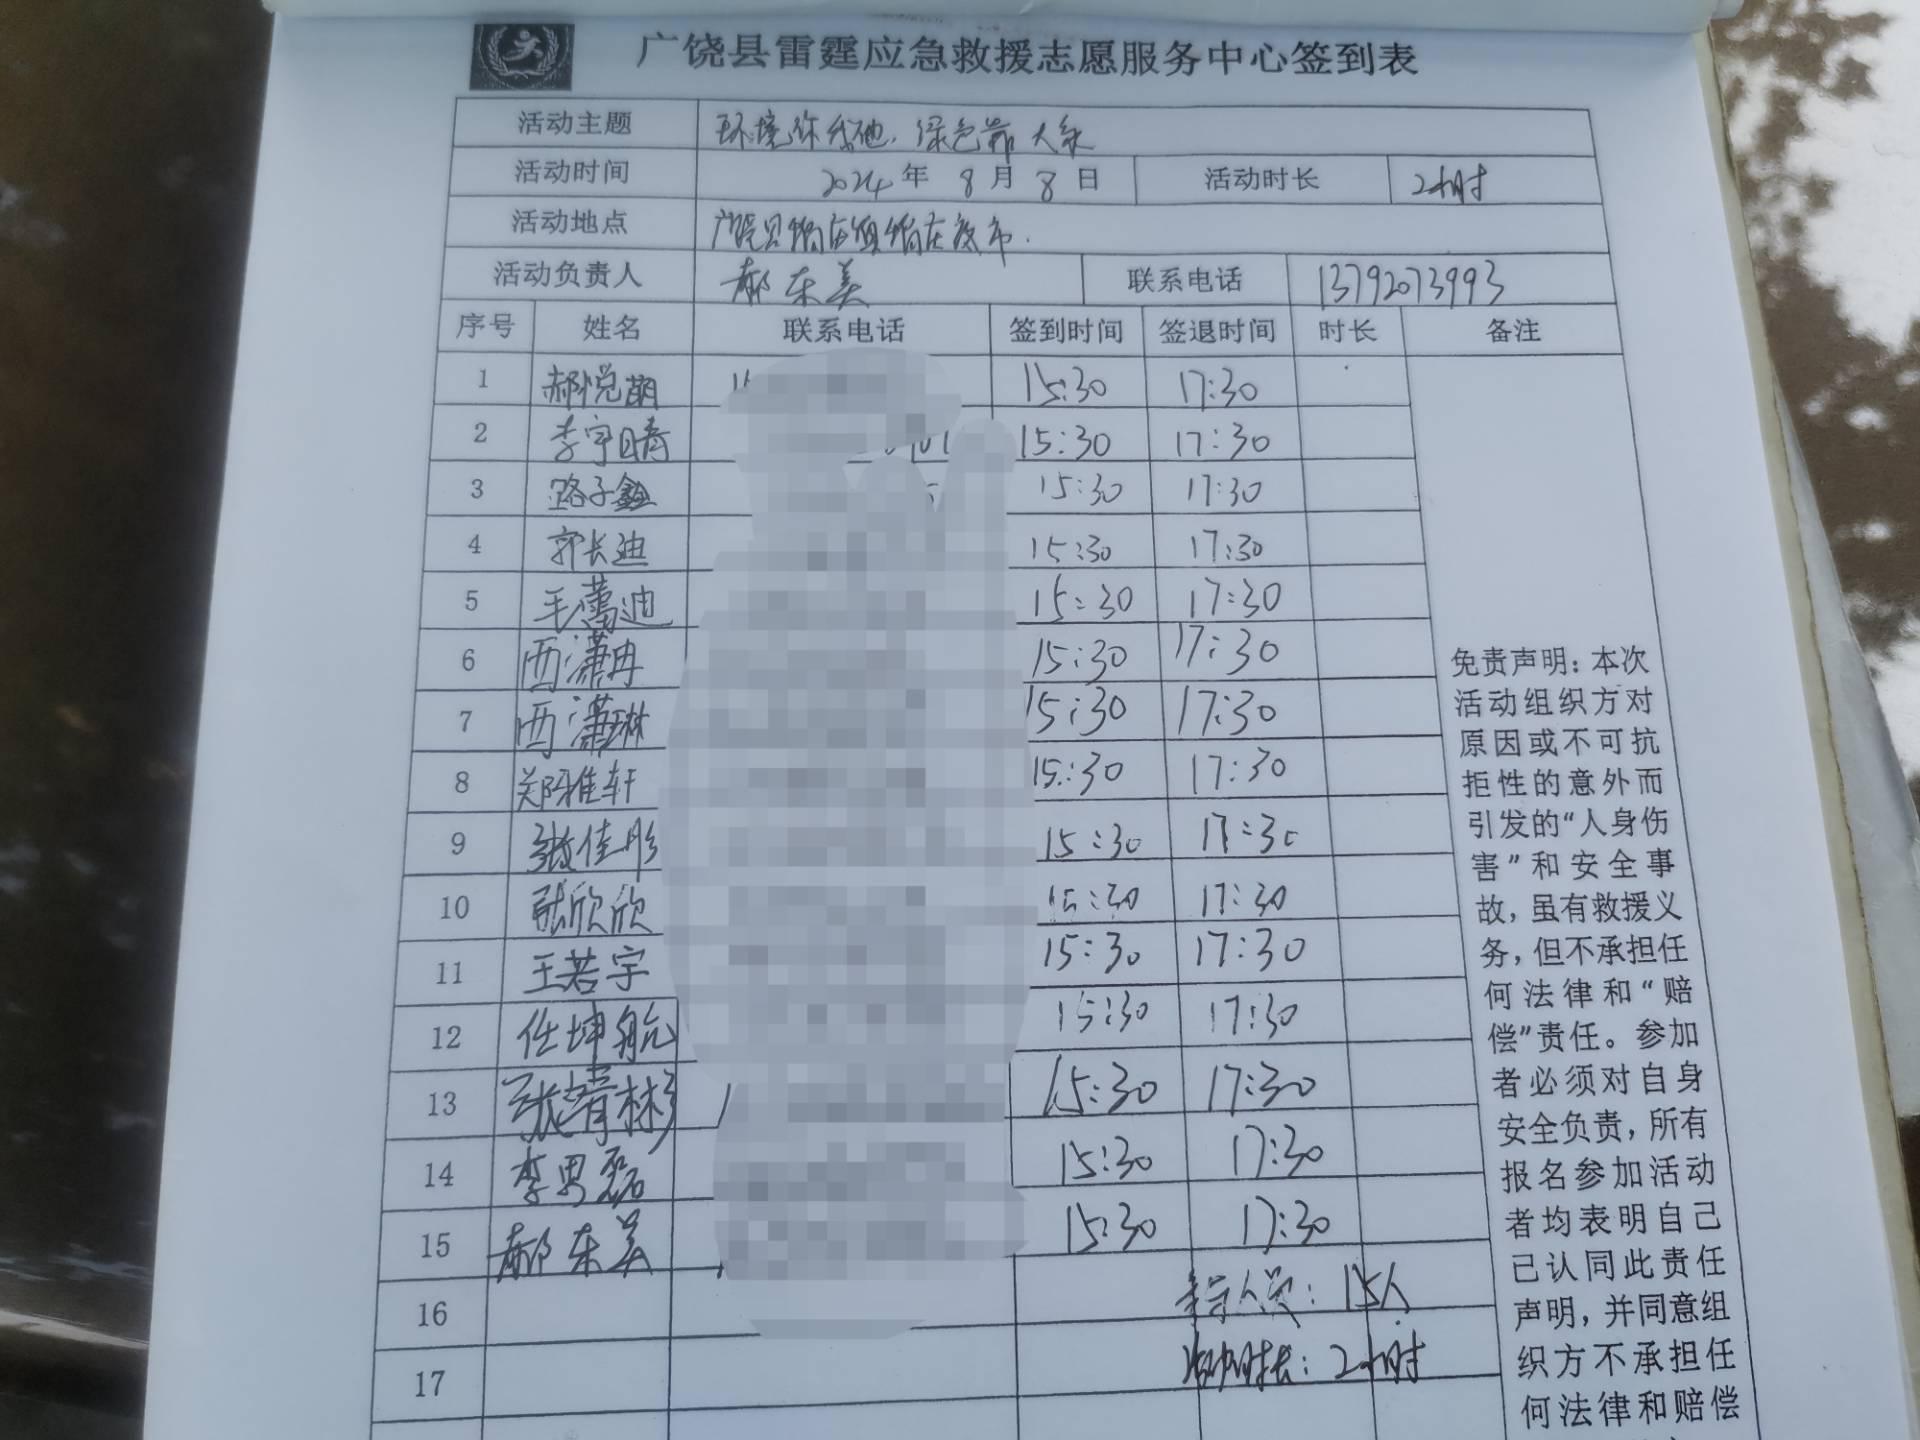 广饶县雷霆应急救援志愿服务中心签到表
活动主题 环境你我他.绿色靠大家
活动时间 2024年 8月 8日 活动时长 2小时
活动地点 广饶县稻庄镇稻庄
活动负责人 郝东美 联系电话 13792073993
序号 姓名 联系电话 签到时间 签退时间 时长 备注
1 郝悦萌 15:30 17:30
2 李宇晴 15:30 17:30
3 路子鑫 15:30 17:30
4 郭长迪 15:30 17:30
5 毛蔼迪 15:30 17:30
6 西潇冉 15:30 17:30
7 西潇琳 15:30 17:30
8 郑雅轩 15:30 17:30
9 张佳彤 15:30 17:30
10 张欣欣 15:30 17:30
11 王若宇 15:30 17:30
12 任坤航 15:30 17:30
13 张青彬 15:30 17:30
14 李男磊 15:30 17:30
15 郝东美 15:30 17:30
16 参与人员：15人
17 活动时长：2小时
免责声明：本次
活动组织方对
原因或不可抗
拒性的意外而
引发的“人身伤
害”和安全事
故，虽有救援义
务，但不承担任
何法律和“赔
偿”责任。参加
者必须对自身
安全负责，所有
报名参加活动
者均表明自己
已认同此责任
声明，并同意组
织方不承担任
何法律和赔偿